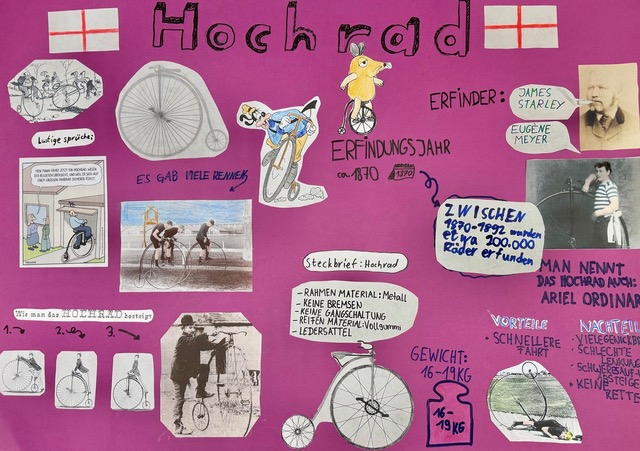 Hochrad
ERFINDER:
JAMES
STARLEY
EUGÈNE
MEYER
Lustige sprüche:
ERFINDUNGSJAHR
ca. 1870
1870
ES GAB VIELE RENNEN
ZWISCHEN
1870-1892 wurden
etwa 200.000
Räder erfunden
MAN NENNT
DAS HOCHRAD AUCH:
ARIEL ORDINAR
Steckbrief: Hochrad
- RAHMEN MATERIAL: Metall
- KEINE BREMSEN
- KEINE GANGSCHALTUNG
- REIFEN MATERIAL: Vollgummi
- LEDERSATTEL
Wie man das HOCHRAD besteigt
1.
2.
3.
GEWICHT:
16-19KG
16-
19KG
VORTEILE
• SCHNELLERE
FAHRT
NACHTEIL
• SCHLECHTE
LENKUNG
• KEINE
KETTE